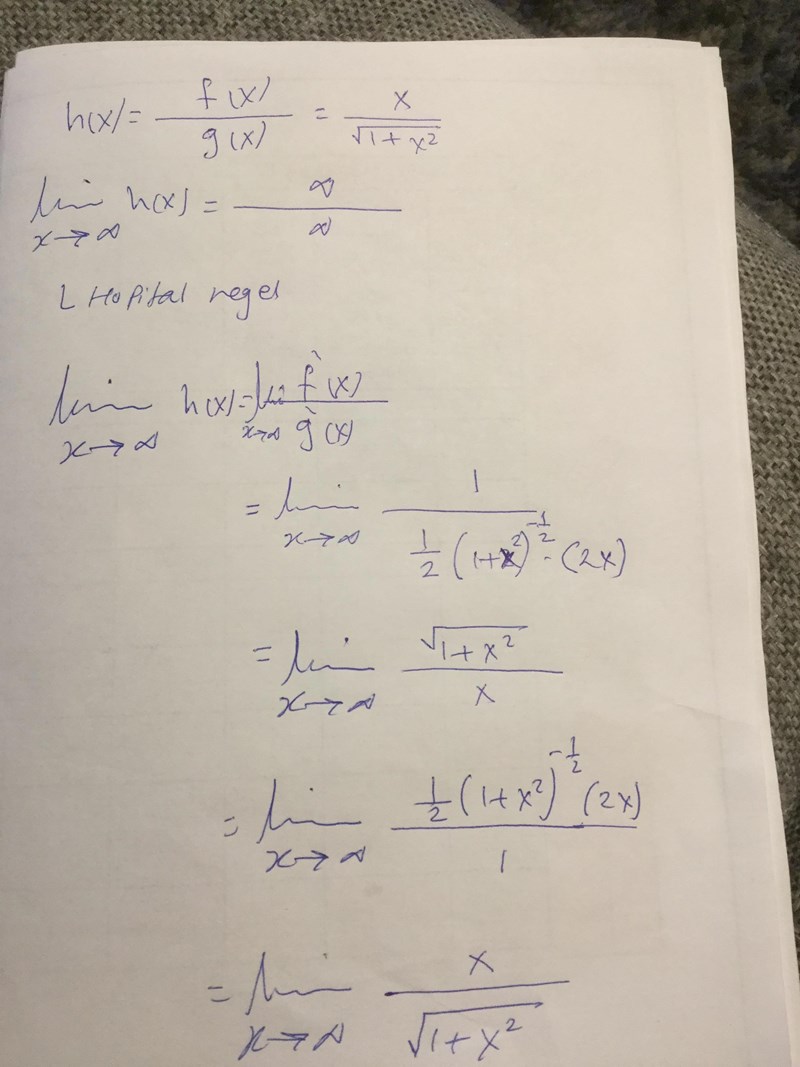 h(x) = f(x) / g(x) = x / √(1+x²)
lim x→∞ h(x) = ∞ / ∞
L Hopital regel
lim x→∞ h(x) = lim x→∞ f`(x) / g`(x)
= lim x→∞ 1 / (1/2 (1+x²)^(-1/2) · (2x))
= lim x→∞ √(1+x²) / x
= lim x→∞ 1/2 (1+x²)^(-1/2) (2x) / 1
= lim x→∞ x / √(1+x²)